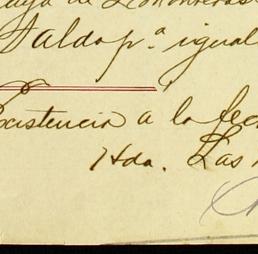 de
Saldo p.ª igual
Existencia a la fec
Hda. Las